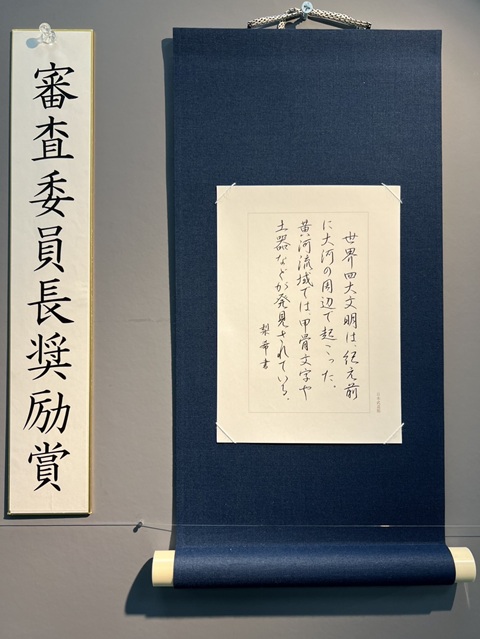 審査委員長奨励賞
世界四大文明は、紀元前
に大河の周辺で起こった。
黄河流域では、甲骨文字や
土器などが発見されている。
梨華書